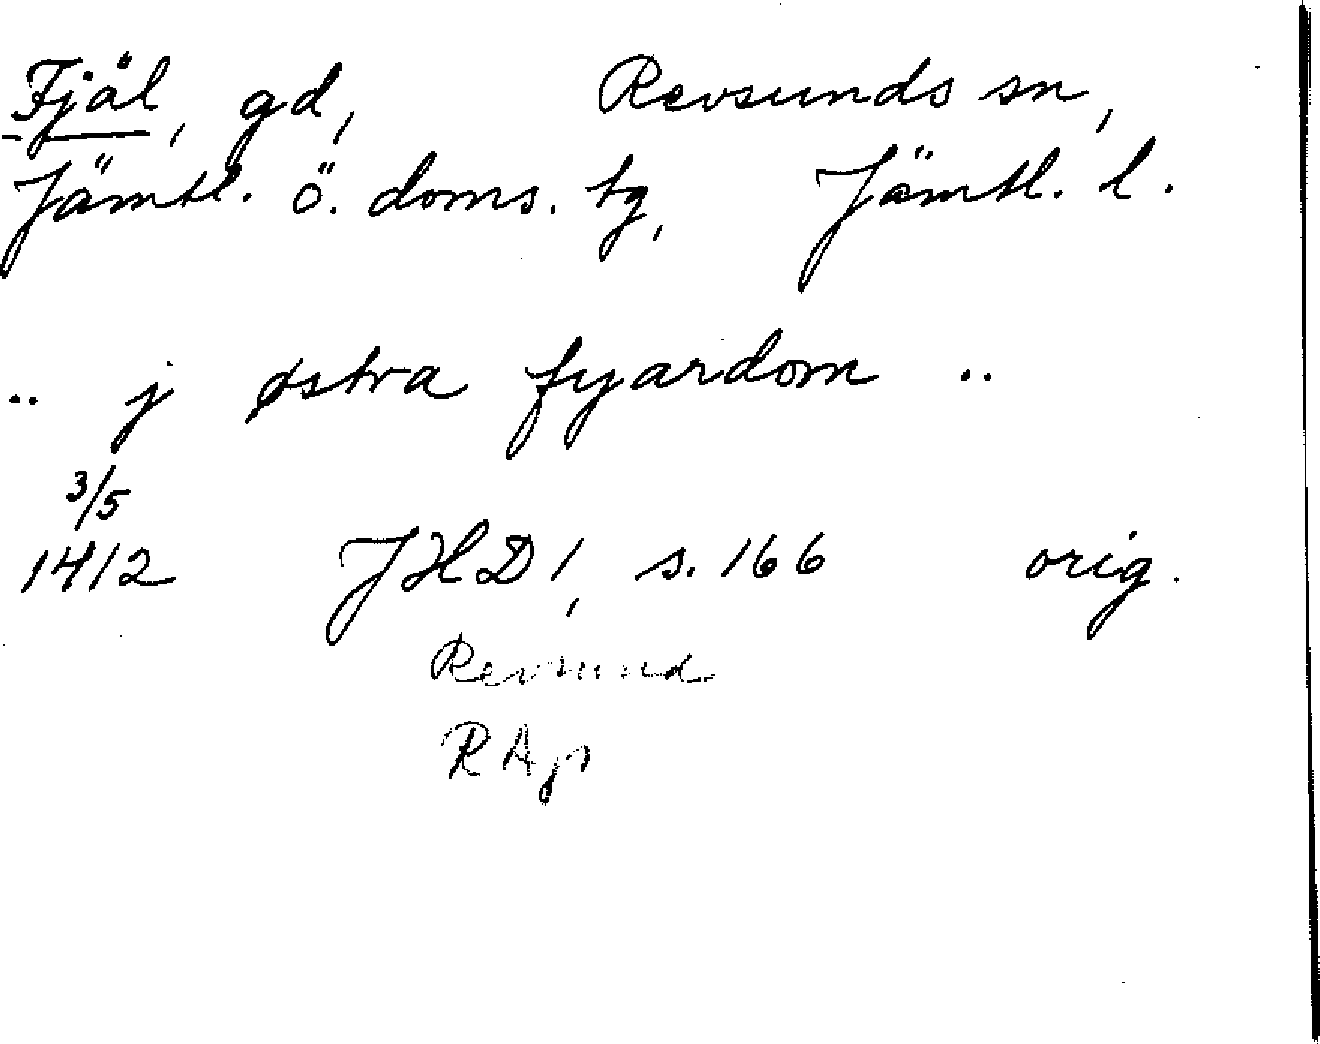 Fjäl, gd, Revsunds sn,
Jämtl. ö. doms. tg, Jämtl. l.
.. j østra fyardom ..
3/5
1412 JHD 1, s. 166 orig.
Revsund
RAp